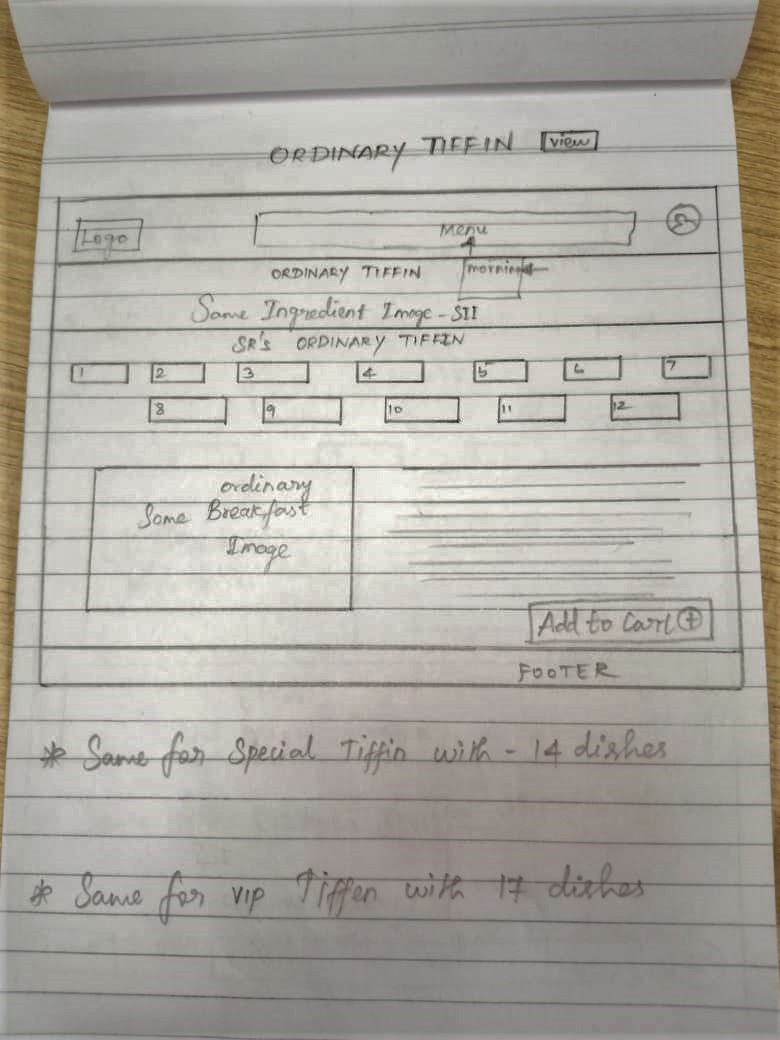 ORDINARY TIFFIN view
Logo
Menu
ORDINARY TIFFIN morning
Same Ingredient Image - SII
SR's ORDINARY TIFFIN
1 2 3 4 5 6 7
8 9 10 11 12
ordinary
Some Breakfast
Image
Add to Cart +
FOOTER
* Same for Special Tiffin with - 14 dishes
* Same for VIP Tiffen with 17 dishes